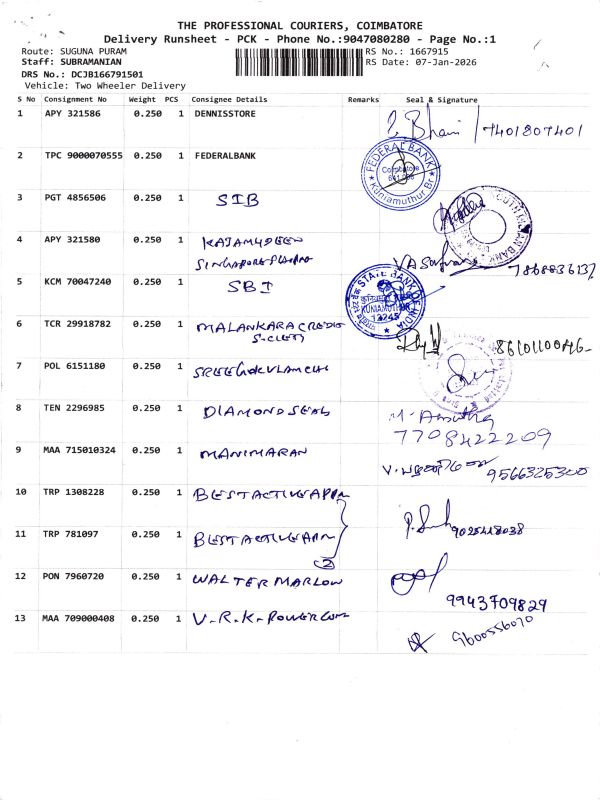 THE PROFESSIONAL COURIERS, COIMBATORE
Delivery Runsheet - PCK - Phone No.:9047080280 - Page No.:1
Route: SUGUNA PURAM RS No.: 1667915
Staff: SUBRAMANIAN RS Date: 07-Jan-2026
DRS No.: DCJB166791501
Vehicle: Two Wheeler Delivery
S No Consignment No Weight PCS Consignee Details Remarks Seal & Signature
1 APY 321586 0.250 1 DENNISSTORE Bhavi 7401807401
2 TPC 9000070555 0.250 1 FEDERALBANK
FEDERAL BANK
Coimbatore
Kuniamuthur Br
3 PGT 4856506 0.250 1 SIB
4 APY 321580 0.250 1 KAJAMYDEEN
SINGAPORE
5 KCM 70047240 0.250 1 SBI
STATE BANK OF INDIA
KUNIAMUTHUR
13245
6 TCR 29918782 0.250 1 MALANKARA CREDIT
7 POL 6151180 0.250 1 SREEGOKULAM CHI
8 TEN 2296985 0.250 1 DIAMOND SEAL
7708422209
9 MAA 715010324 0.250 1 MANIMARAN
9566325300
10 TRP 1308228 0.250 1 BESTACTIVE
11 TRP 781097 0.250 1 BESTACTIVE
2
9025418038
12 PON 7960720 0.250 1 WALTER MARLOW
9943709829
13 MAA 709000408 0.250 1 V.R.K. POWER
9600556070